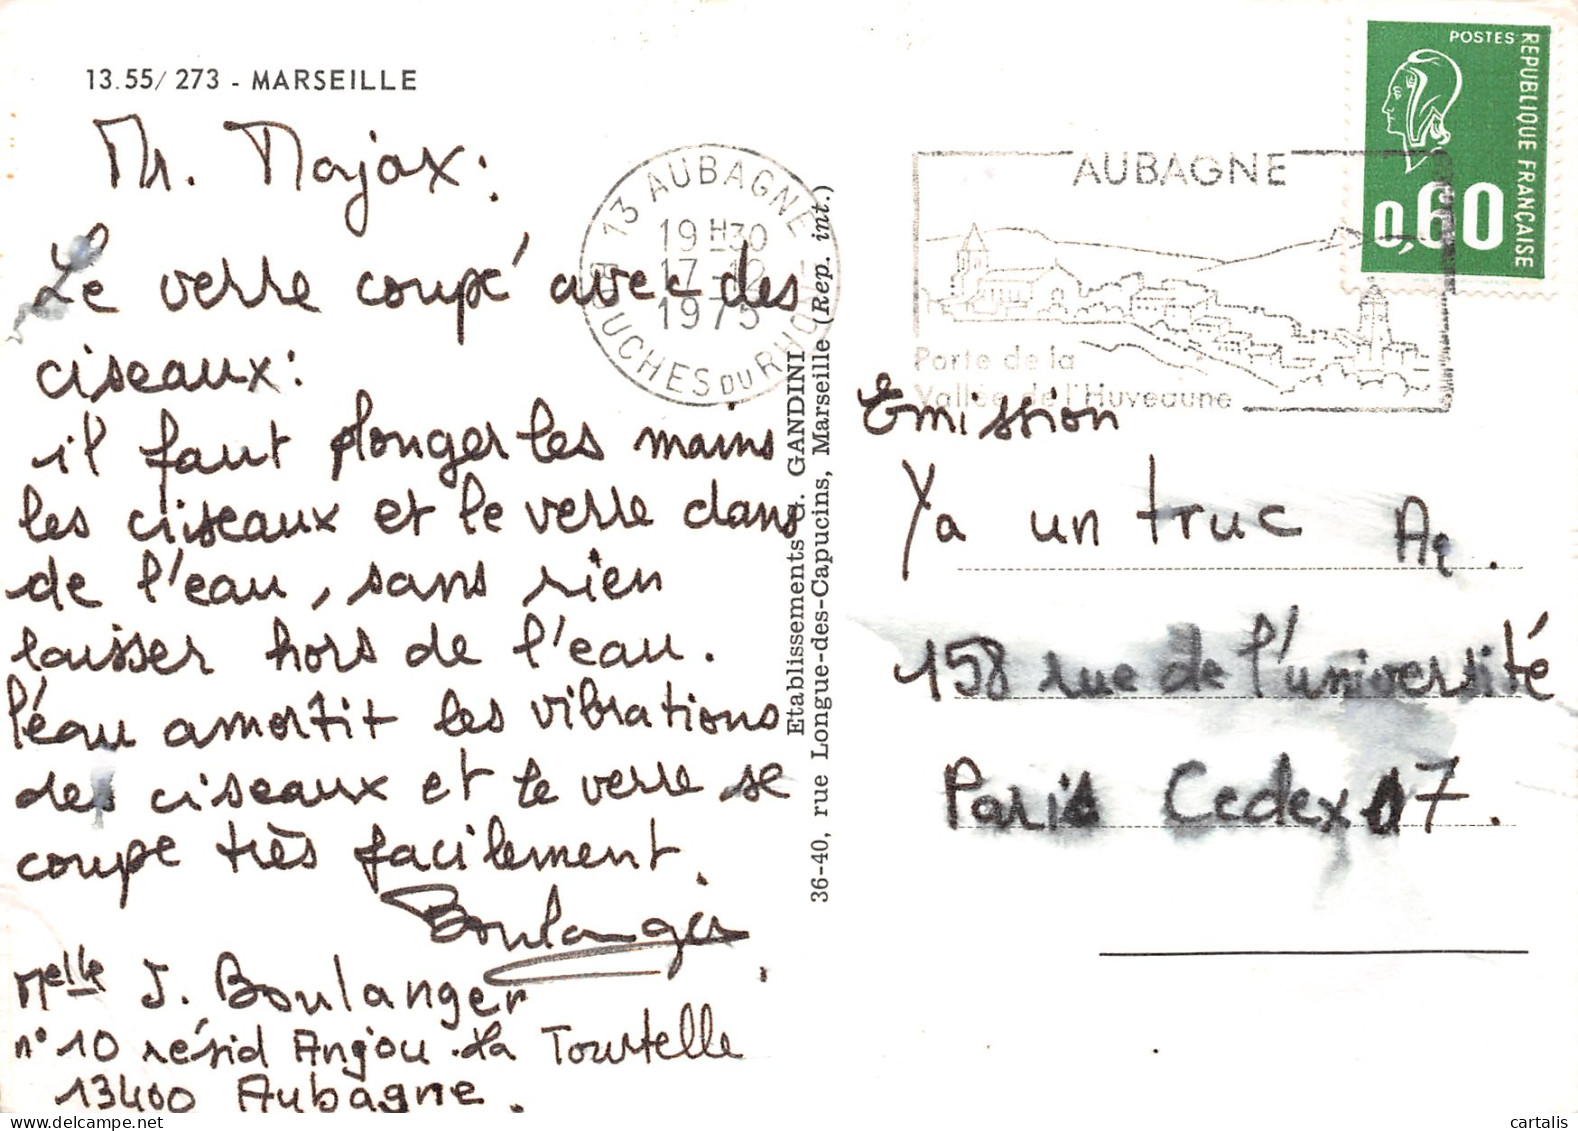 13.55/ 273 - MARSEILLE
Mr. Majax :
Le verre coupé avec des
ciseaux :
il faut plonger les mains
les ciseaux et le verre dans
de l'eau, sans rien
laisser hors de l'eau.
l'eau amortit les vibrations
des ciseaux et le verre se
coupe très facilement.
Boulanger
Melle J. Boulanger
n° 10 résid Anjou La Tourtelle
13400 Aubagne.
13 AUBAGNE
19 H30
17-12
1975
BOUCHES DU RHONE
Etablissements G. GANDINI
36-40, rue Longue-des-Capucins, Marseille (Rep. int.)
AUBAGNE
Porte de la
Vallée de l'Huveaune
POSTES
REPUBLIQUE FRANÇAISE
0,60
Emission
Ya un truc A2.
158 rue de l'université
Paris Cedex 07.
cartalis